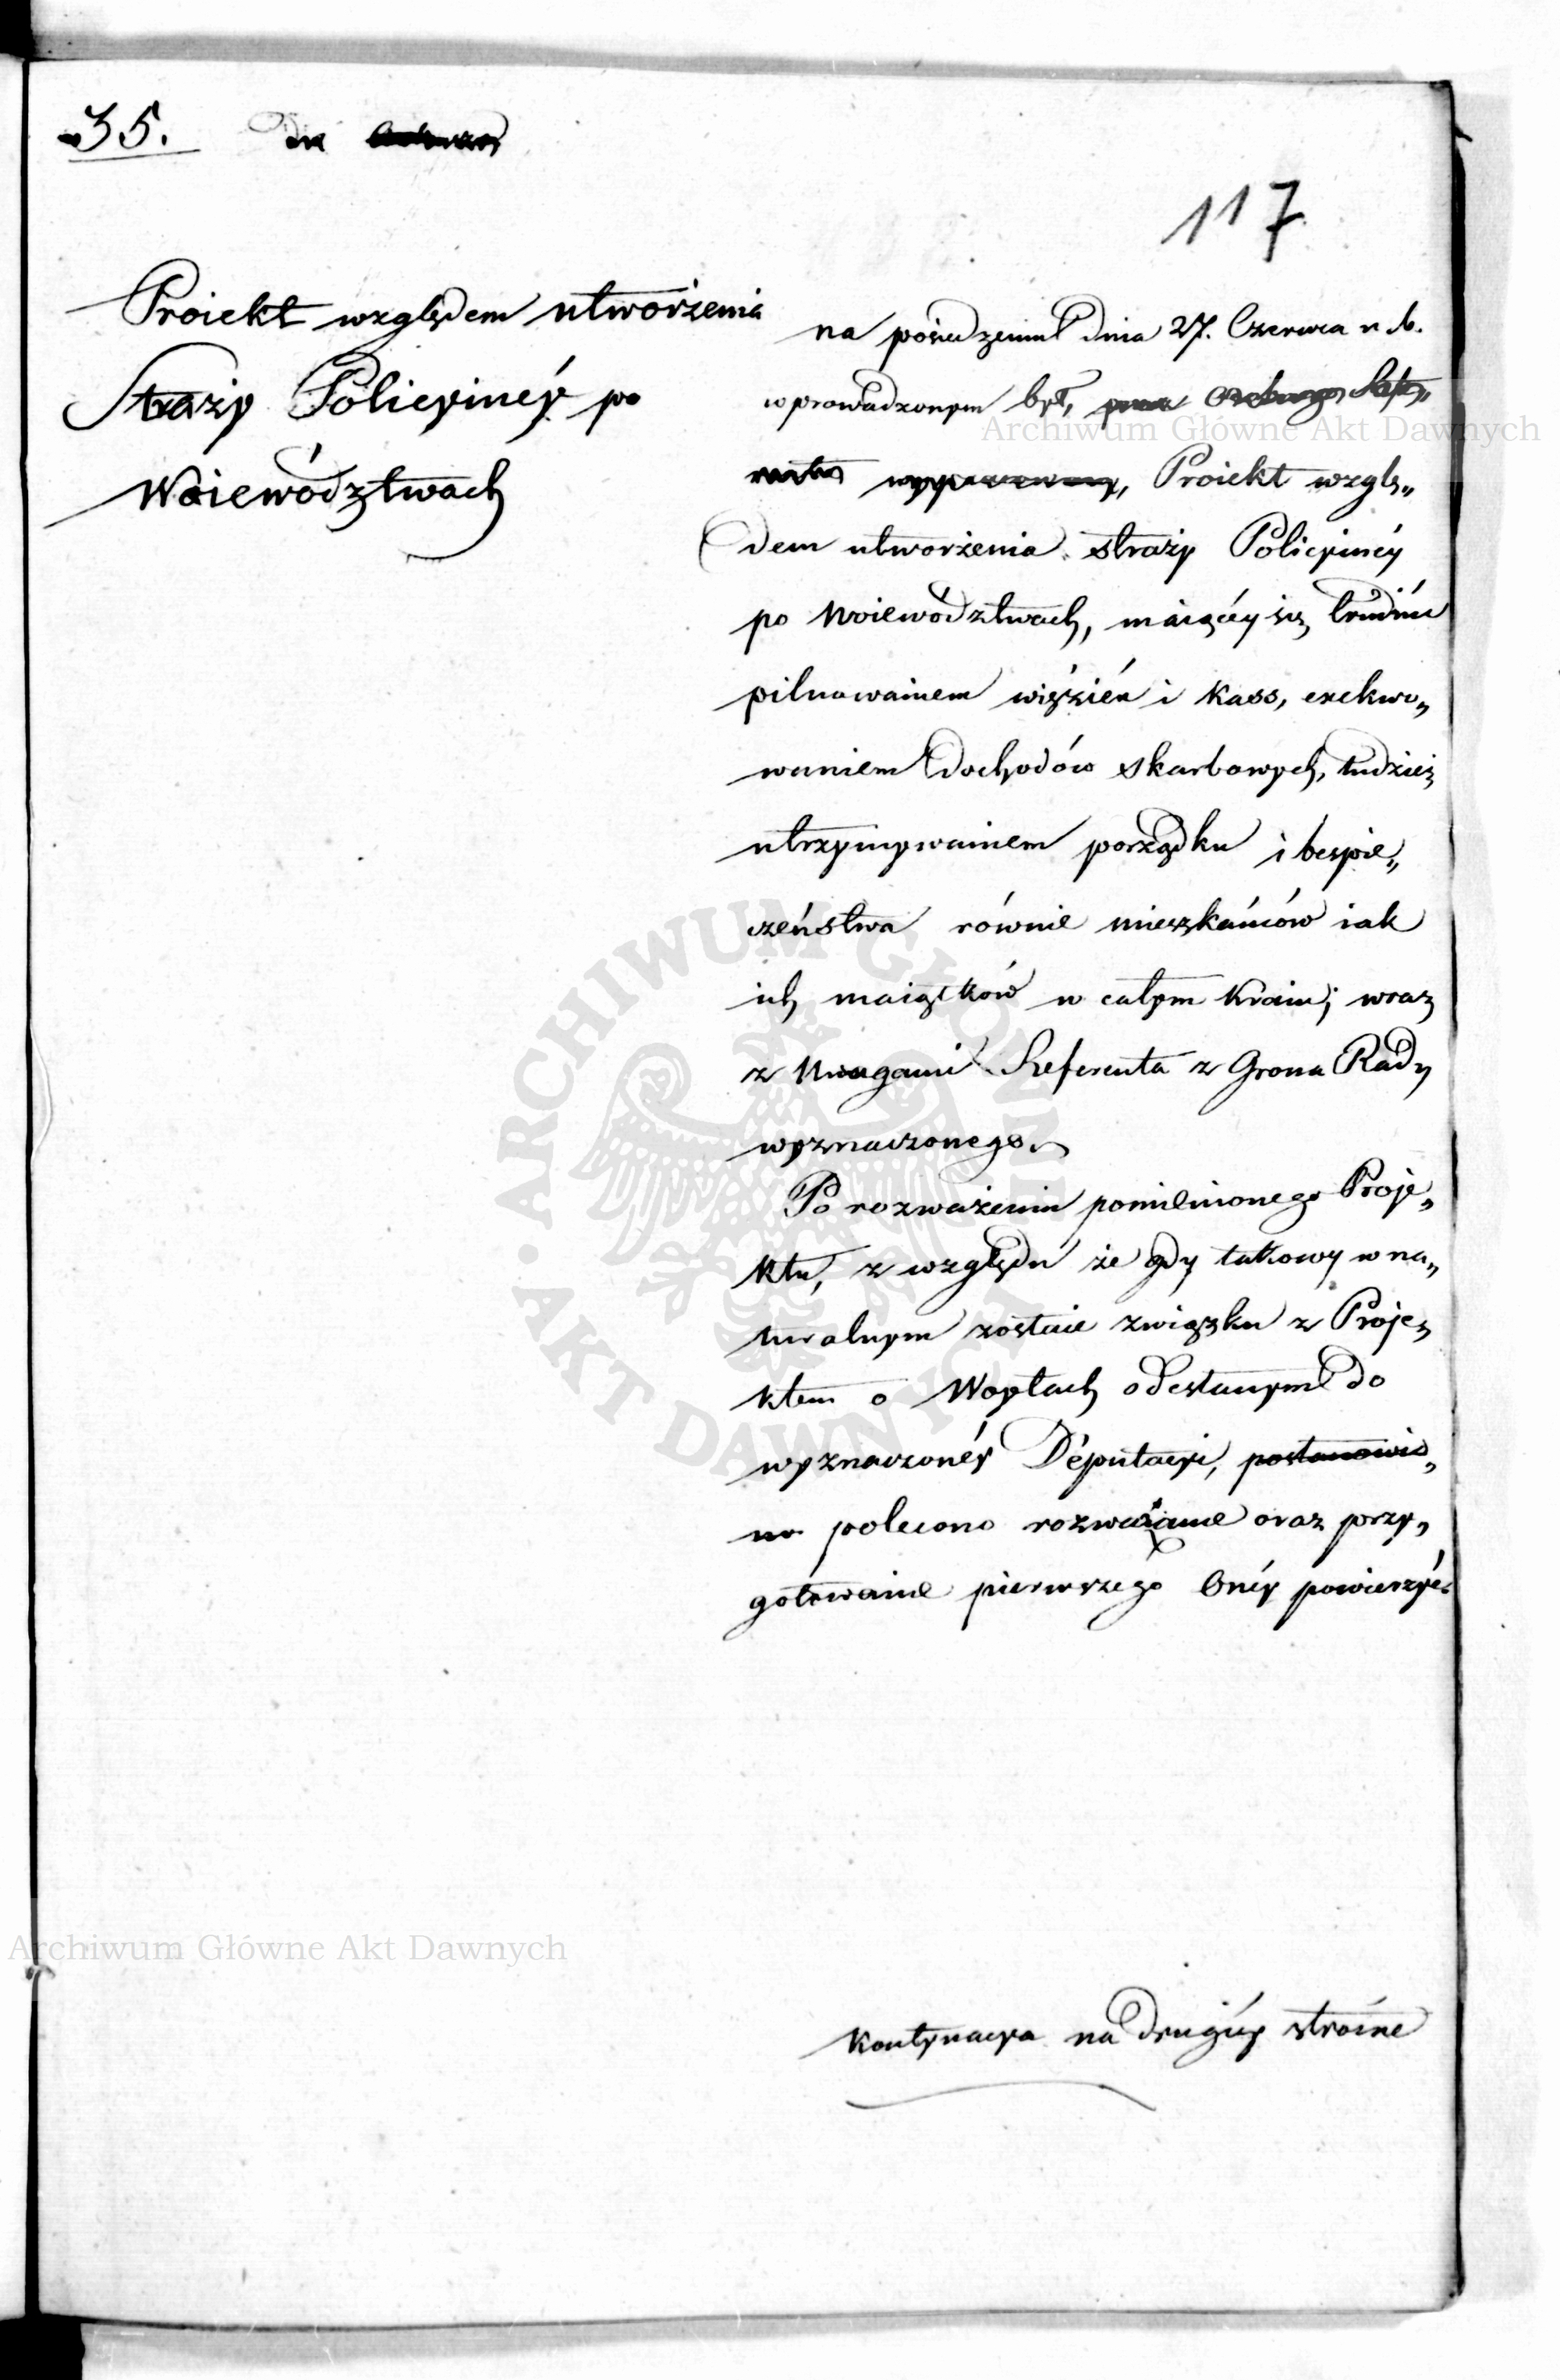 35.
117
Proiekt względem utworzenia
Straży Policyinéy po
Woiewództwach
na posiedzeniu dnia 27. Czerwca r. b.
wprowadzonym był,
Proiekt wzglę„
dem utworzenia straży Policyinéy
po Woiewództwach, maiącéy się trudnić
pilnowaniem więzień i Kass, exekwo„
waniem dochodów skarbowych, tudzież
utrzymywaniem porządku i bespie„
czeństwa równie mieszkańców iak
ich maiątków w całym Kraiu; wraz
z Uwagami Referenta z Grona Rady
wyznaczonego.
Po rozważeniu pomienionego Proje„
ktu, z względu że gdy takowy w na„
turalnym zostaie związku z Proje„
ktem o Woytach odesłanym do
wyznaczonéy Députacyi, postanowio„
no polecono rozważanie oraz przy„
gotowanie pierwszego Onéy powierzyć.
Kontynacya na drugiéy stronie
Archiwum Główne Akt Dawnych
ARCHIWUM GŁÓWNE · AKT DAWNYCH ·
Archiwum Główne Akt Dawnych